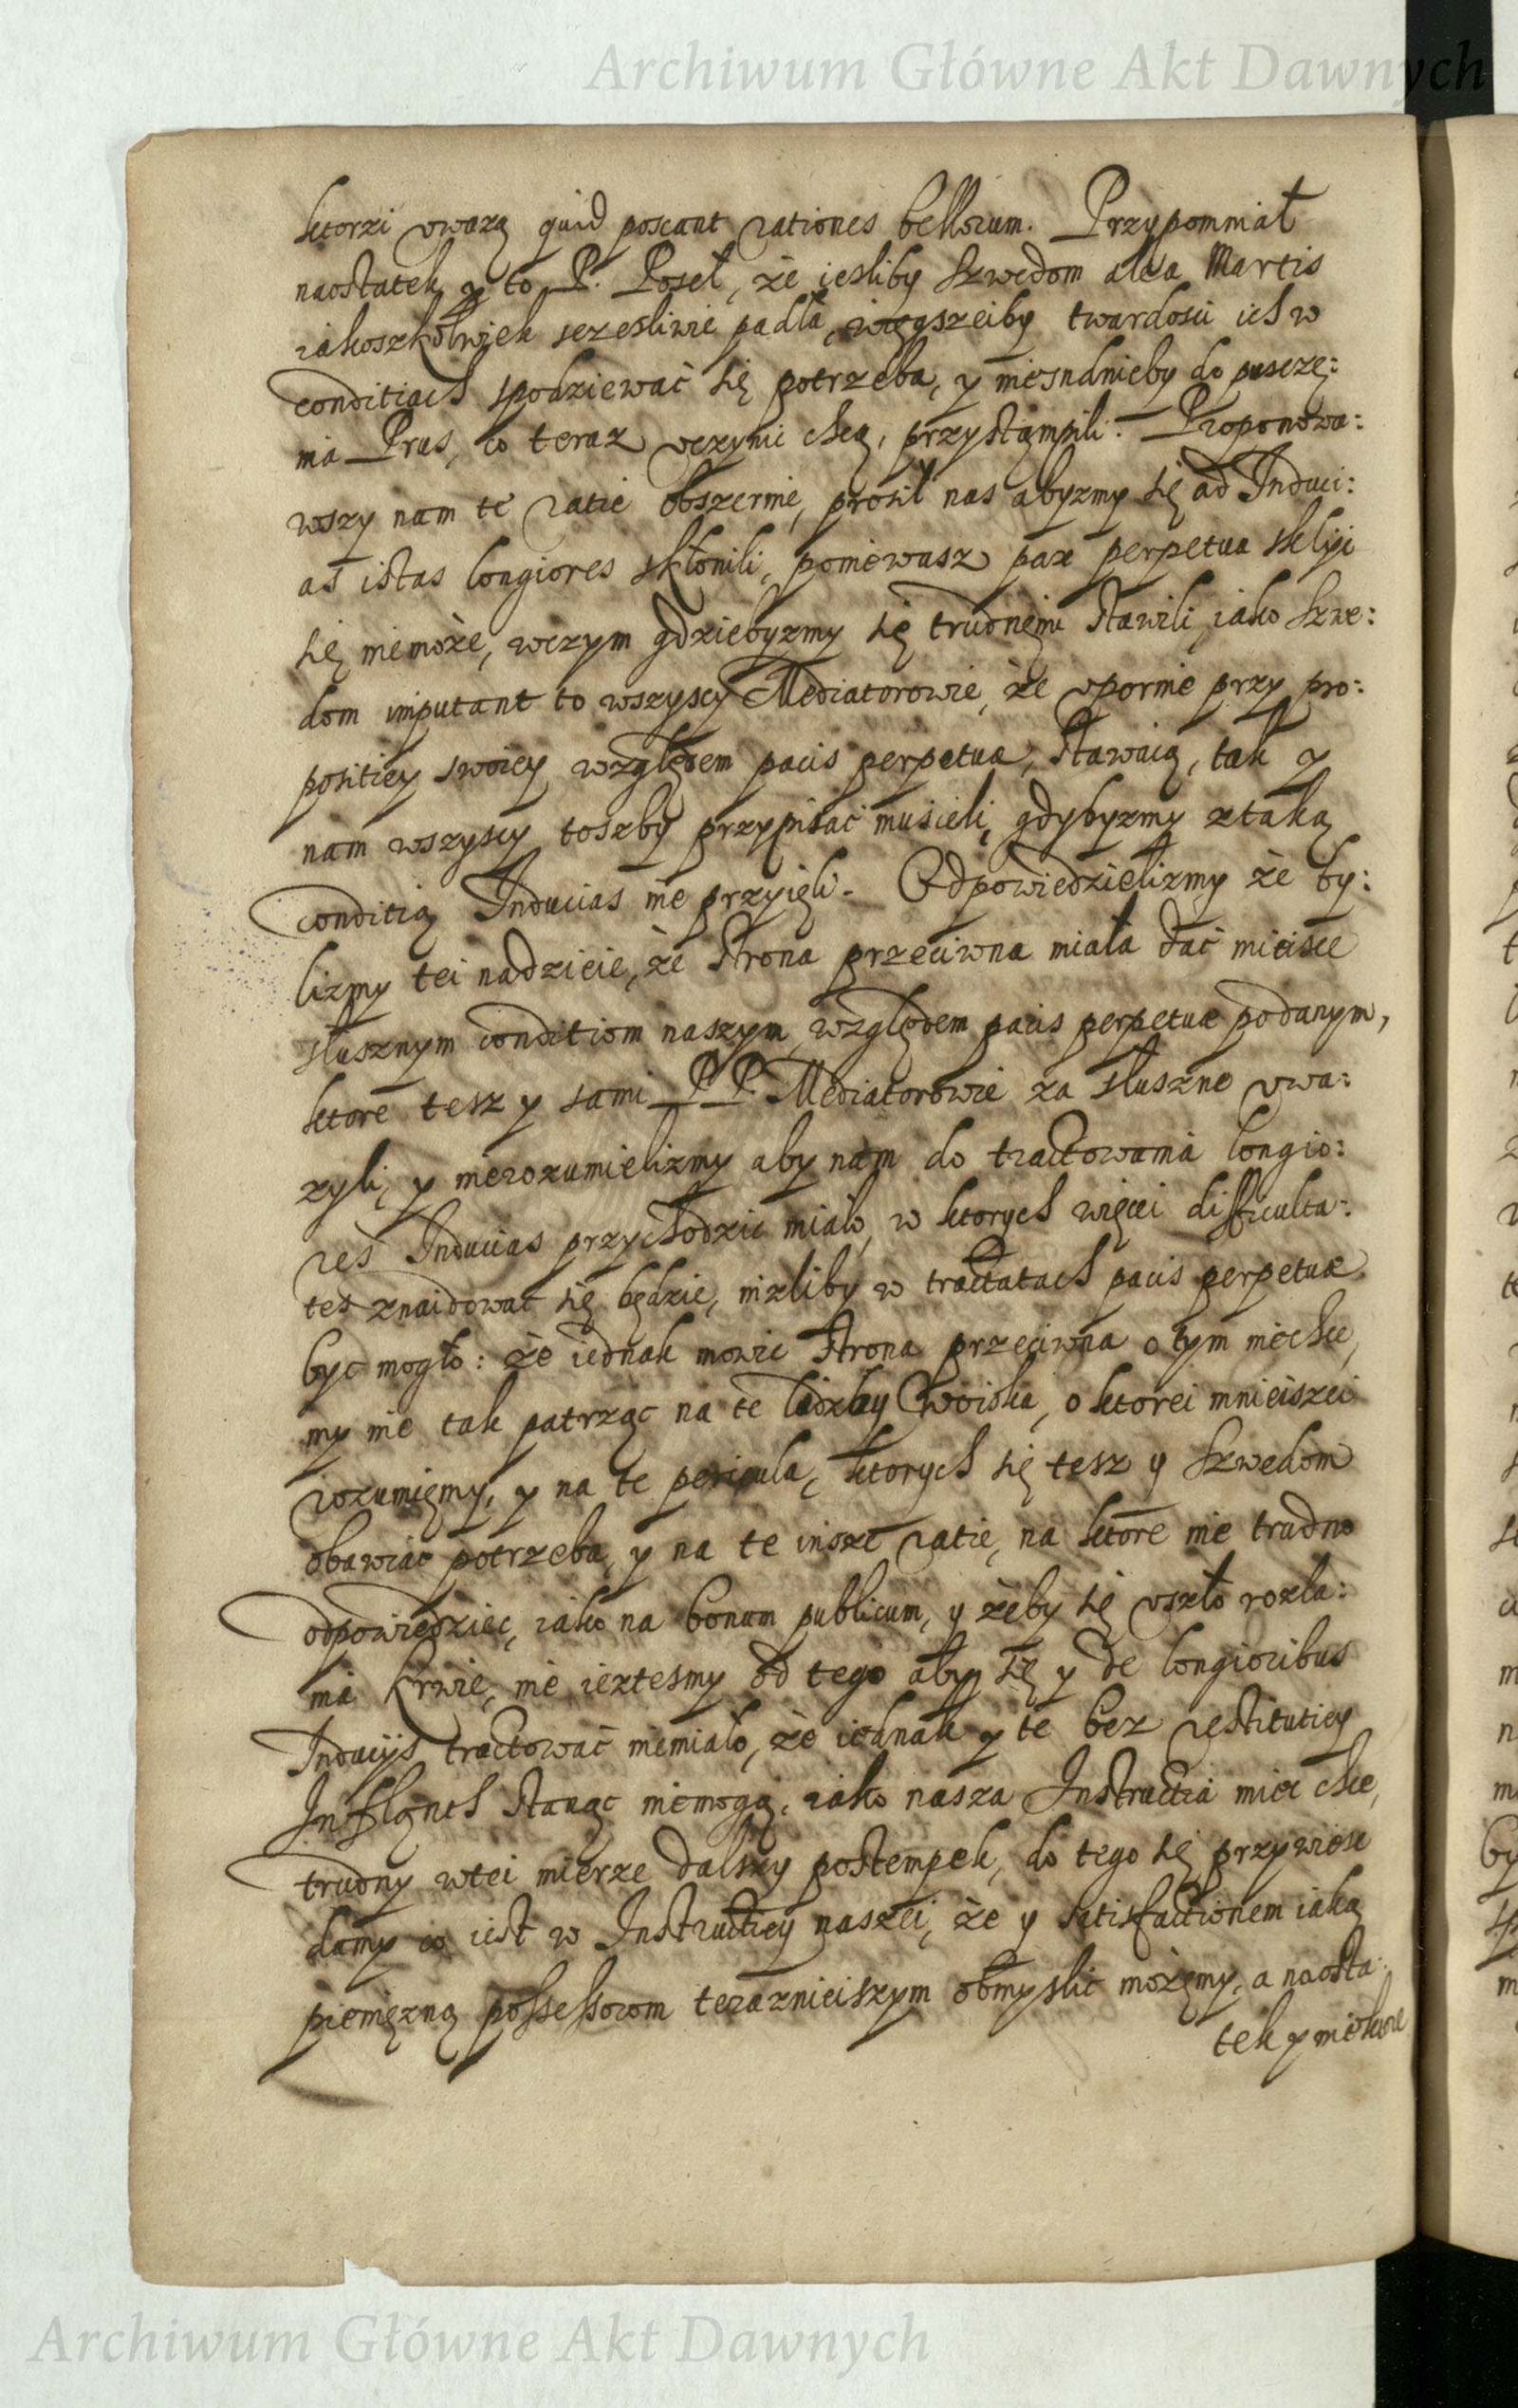 Archiwum Główne Akt Dawnych
ktorzi uwazą quid poscant rationes bellorum. Przypomniał
naostatek y to P. Poseł, że iesliby Szwedom alea Martis
iakoszkolwiek sczesliwie padła, więgszeiby twardosci ich w
conditiach spodziewać się potrzeba, y niesnadnieby do puszczę:
nia Prus, co teraz uczynic chcą, przystąmpili. Proponowa:
wszy nam te ratie obszernie, prosił nas abyzmy się ad Induci:
as istas longiores skłonili, poniewasz pax perpetua skleji
się niemoże, wczym gdziebyzmy się trudnęmi stawili, iako Szwe:
dom imputant to wszyscy Mediatorowie, że upornie przy pro:
positiey swoiey względem pacis perpetuæ, stawaią, tak y
nam wszyscy toszby przypisać musieli, gdybyzmy ztaką
conditią Inducias nie przyięli. Odpowiedzielizmy że by:
lizmy tei nadzieie, że strona przeciwna miała dać mieisce
słusznym conditiom naszym, względem pacis perpetuæ podanym,
ktore tesz y sami P. P. Mediatorowie za słuszne uwa:
zyli, y nierozumielizmy aby nam do tractowania longio:
res Inducias przychodzic miało, w ktorych więcei difficulta:
tes znaidowac się będzie, nizliby w tractatach pacis perpetuæ
byc mogło: że iednak mowic strona przeciwna o tym niechce,
my nie tak patrząc na te liczby Woiska, o ktorei mnieiszei
rozumięmy, y na te pericula, ktorych się tesz y Szwedom
obawiac potrzeba, y na te insze ratie, na ktore nie trudno
odpowiedziec, iako na bonum publicum, y żeby się uszło rozla:
nia krwie, nie ieztesmy od tego aby się y de longioribus
Inducijs tractować niemiało, że iednak y te bez restitutiey
Infląnth stanąc niemogą, iako nasza Instructia miec chce,
trudny wtei mierze dalszy postempek, do tego się przywiesc
damy co iest w Instructiey naszei, że y satisfactionem iaką
pienięzną possessorom teraznieiszym obmyslic możęmy, a naosta:
tek y
Archiwum Główne Akt Dawnych